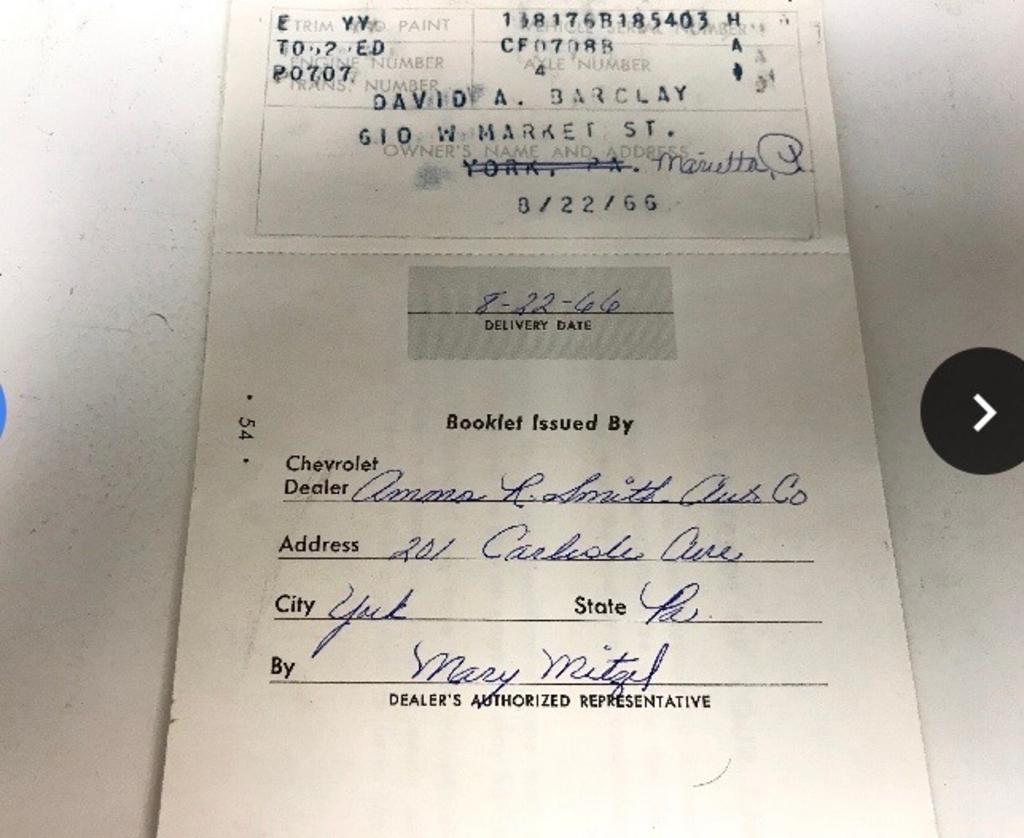 E YY 118176B185403 H
TRIM AND PAINT VEHICLE SERIAL NUMBER
T0 2 ED CF0708B A
ENGINE NUMBER AXLE NUMBER
P0707 4
TRANS. NUMBER
DAVID A. BARCLAY
610 W MARKET ST.
OWNER'S NAME AND ADDRESS
YORK, PA. Marietta, Pa
8/22/66
8-22-66
DELIVERY DATE
Booklet Issued By
• 54 •
Chevrolet
Dealer Ammon R. Smith Auto Co
Address 201 Carlisle Ave
City York State Pa.
By Mary Mitzel
DEALER'S AUTHORIZED REPRESENTATIVE